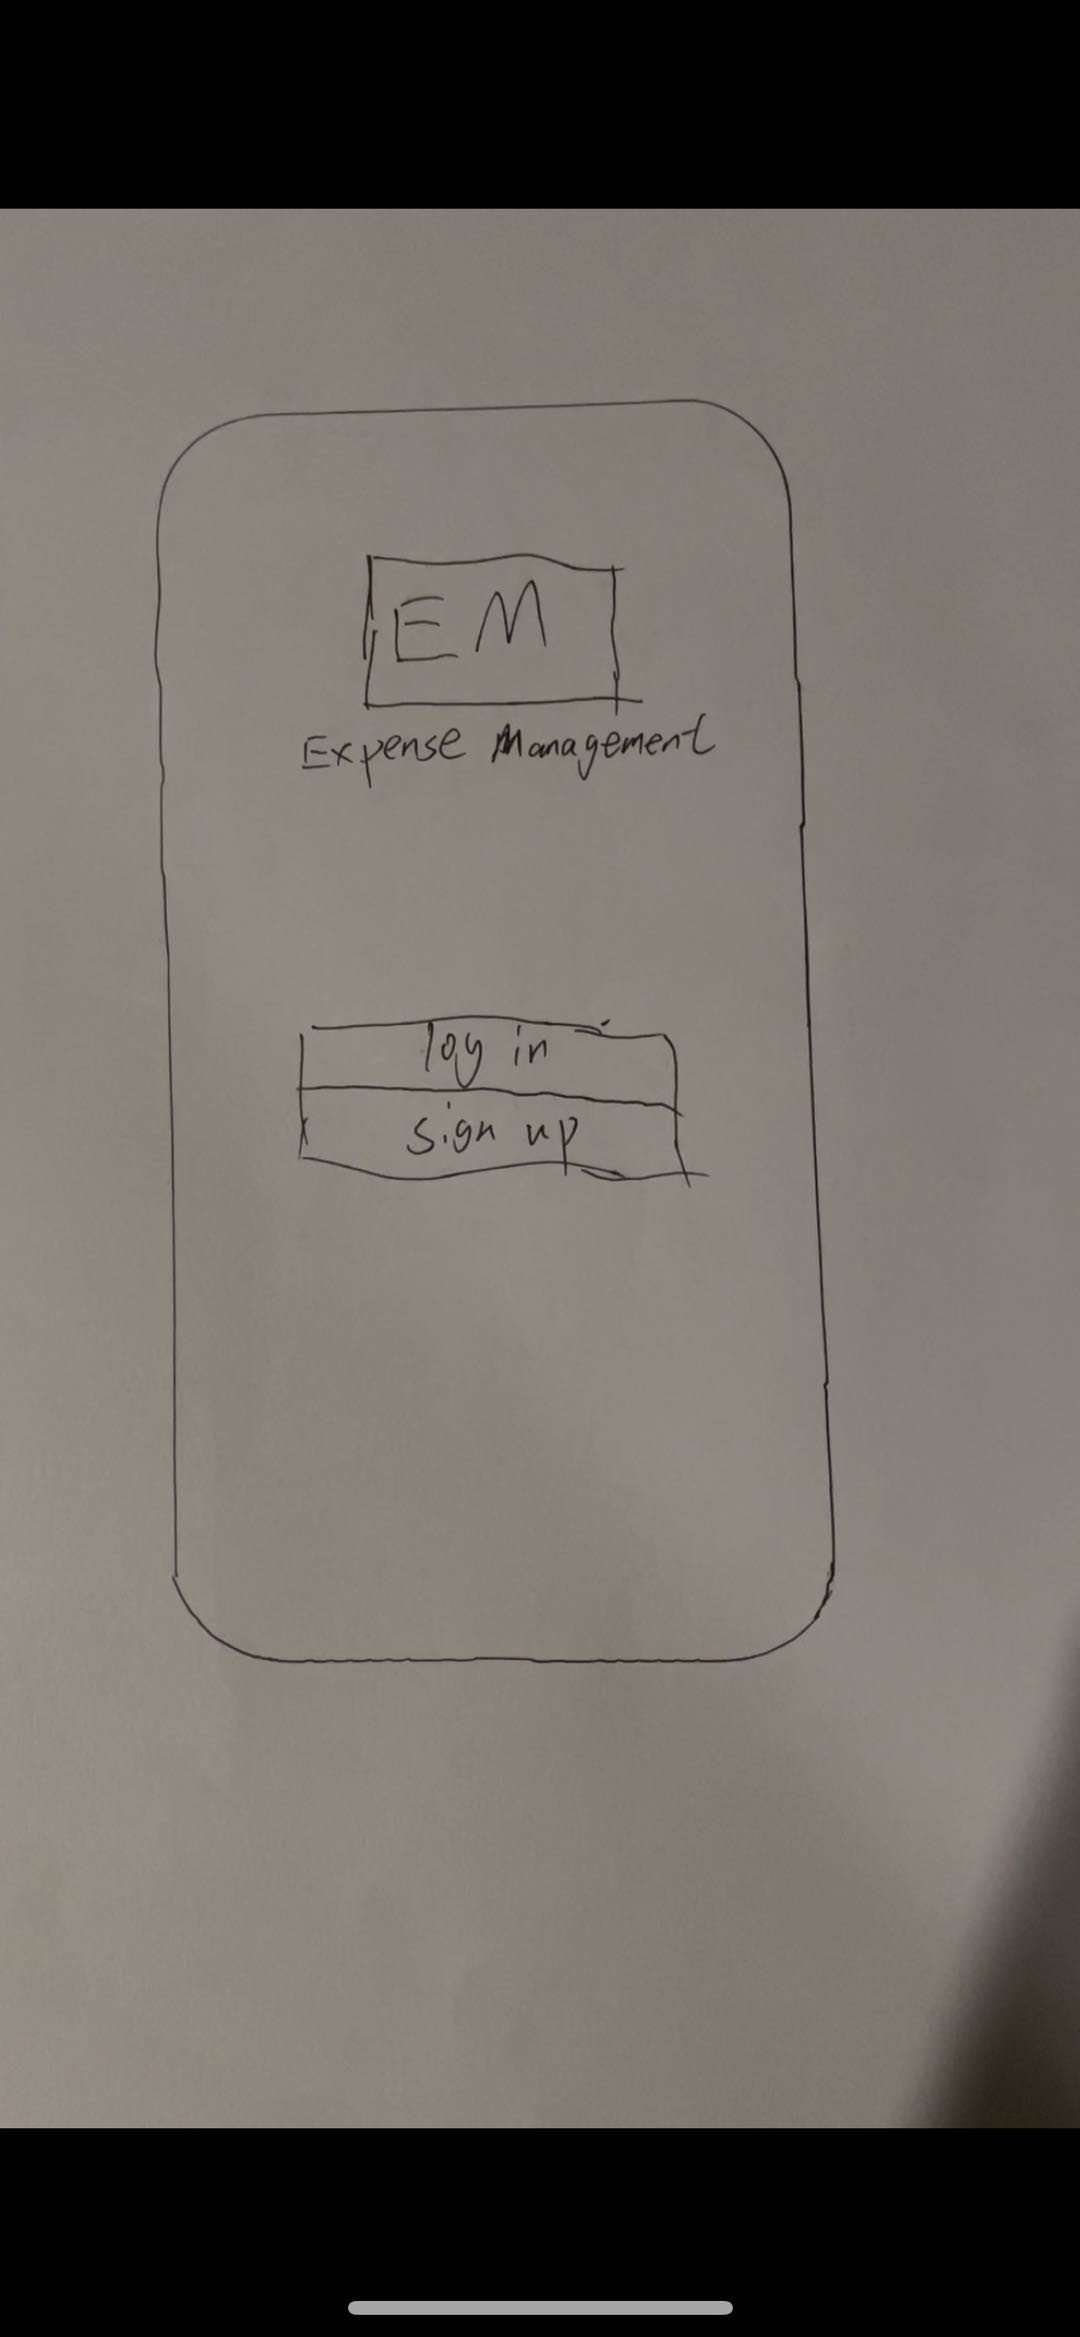 EM
Expense Management
log in
sign up